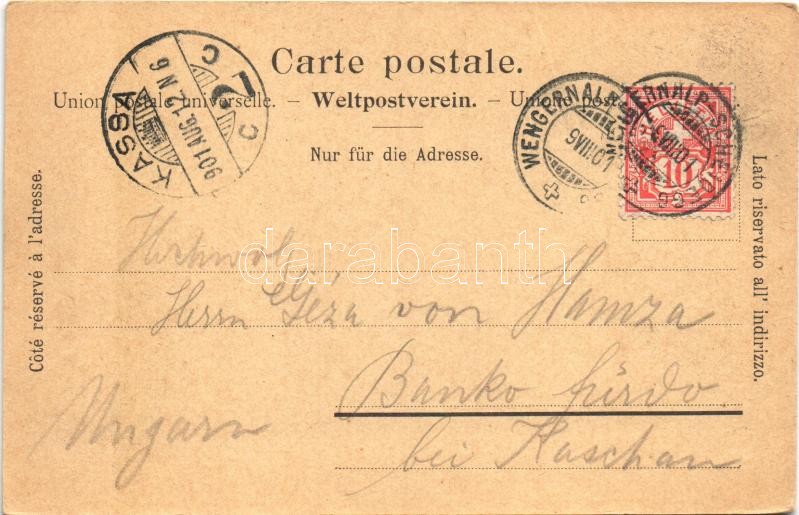 Carte postale.
Union postale universelle. – Weltpostverein. – Unione post
Nur für die Adresse.
Côté réservé à l'adresse.
Lato riservato all' indirizzo.
KASSA
901 AUG. 12 N 6
C 7 C
WENGERNALP
9 VIII 01
10
Hochwol
Herrn Géza von Hamza
Banko fürdo
bei Kaschau
Ungarn
darabanth